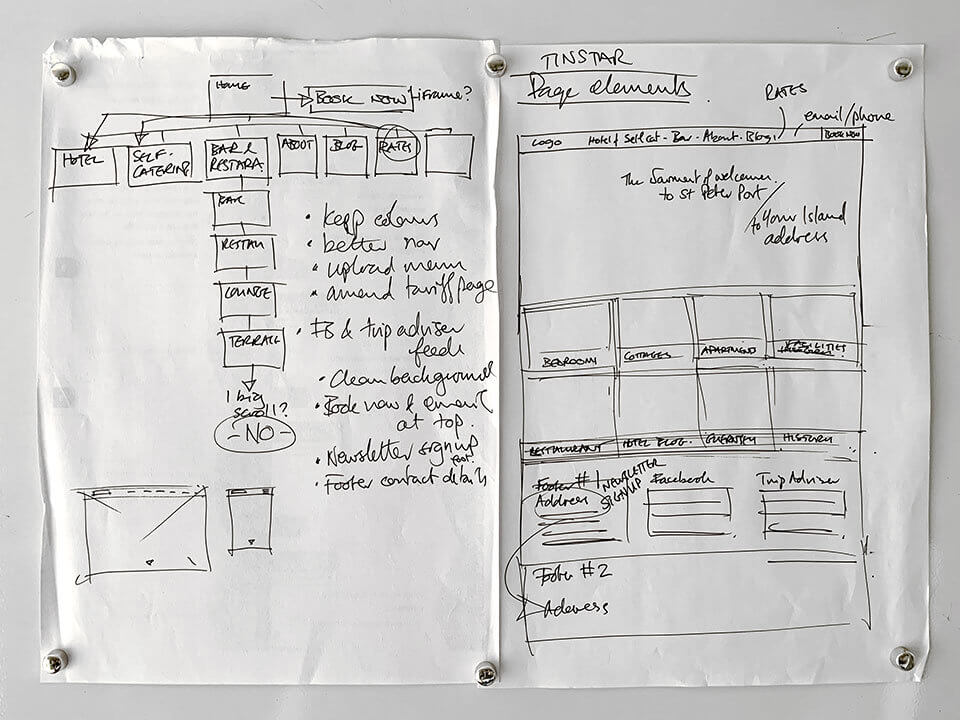 HOME
BOOK NOW
iframe?
HOTEL
SELF-
CATERING
BAR &
RESTARA.
ABOOT
BLOG
RATES
BAR
RESTAU
LOUNGE
TERRACE
1 big
scroll?
- NO -
• keep colours
• better nav
• upload menu
• amend tariff page
• FB & trip adviser
feeds
• Clean background
• Book now & email
at top.
• Newsletter sign up
foot.
• Footer contact details
TINSTAR
Page elements.
RATES
email/phone
LOGO
Hotel & Selfcat - Bar - About - Blog
BOOK NOW
The warmest of welcomes
to St Peter Port
to Your Island
address
BEDROOM
COTTAGES
APARTMENT
FACILITIES
RESTAURANT
HOTEL BLOG.
GUERNSEY
HISTORY
Footer #1
NEWSLETTER
SIGNUP
Address
Facebook
TripAdviser
Footer #2
Address